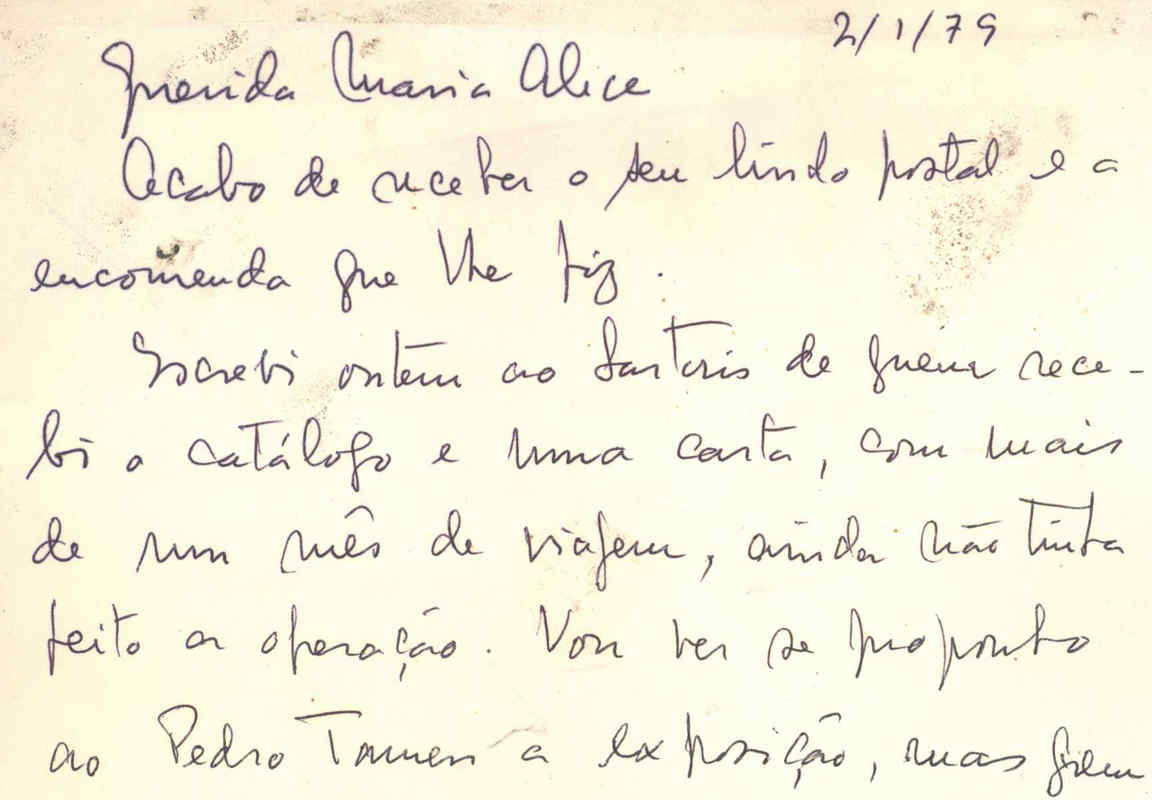 2/1/79
Querida Maria Alice
Acabo de receber o seu lindo postal e a
encomenda que lhe fiz.
Escrevi ontem ao Sartoris de quem rece-
bi o catálogo e uma carta, com mais
de um mês de viagem, ainda não tinha
feito a operação. Vou ver se proponho
ao Pedro Tamen a exposição, mas quem